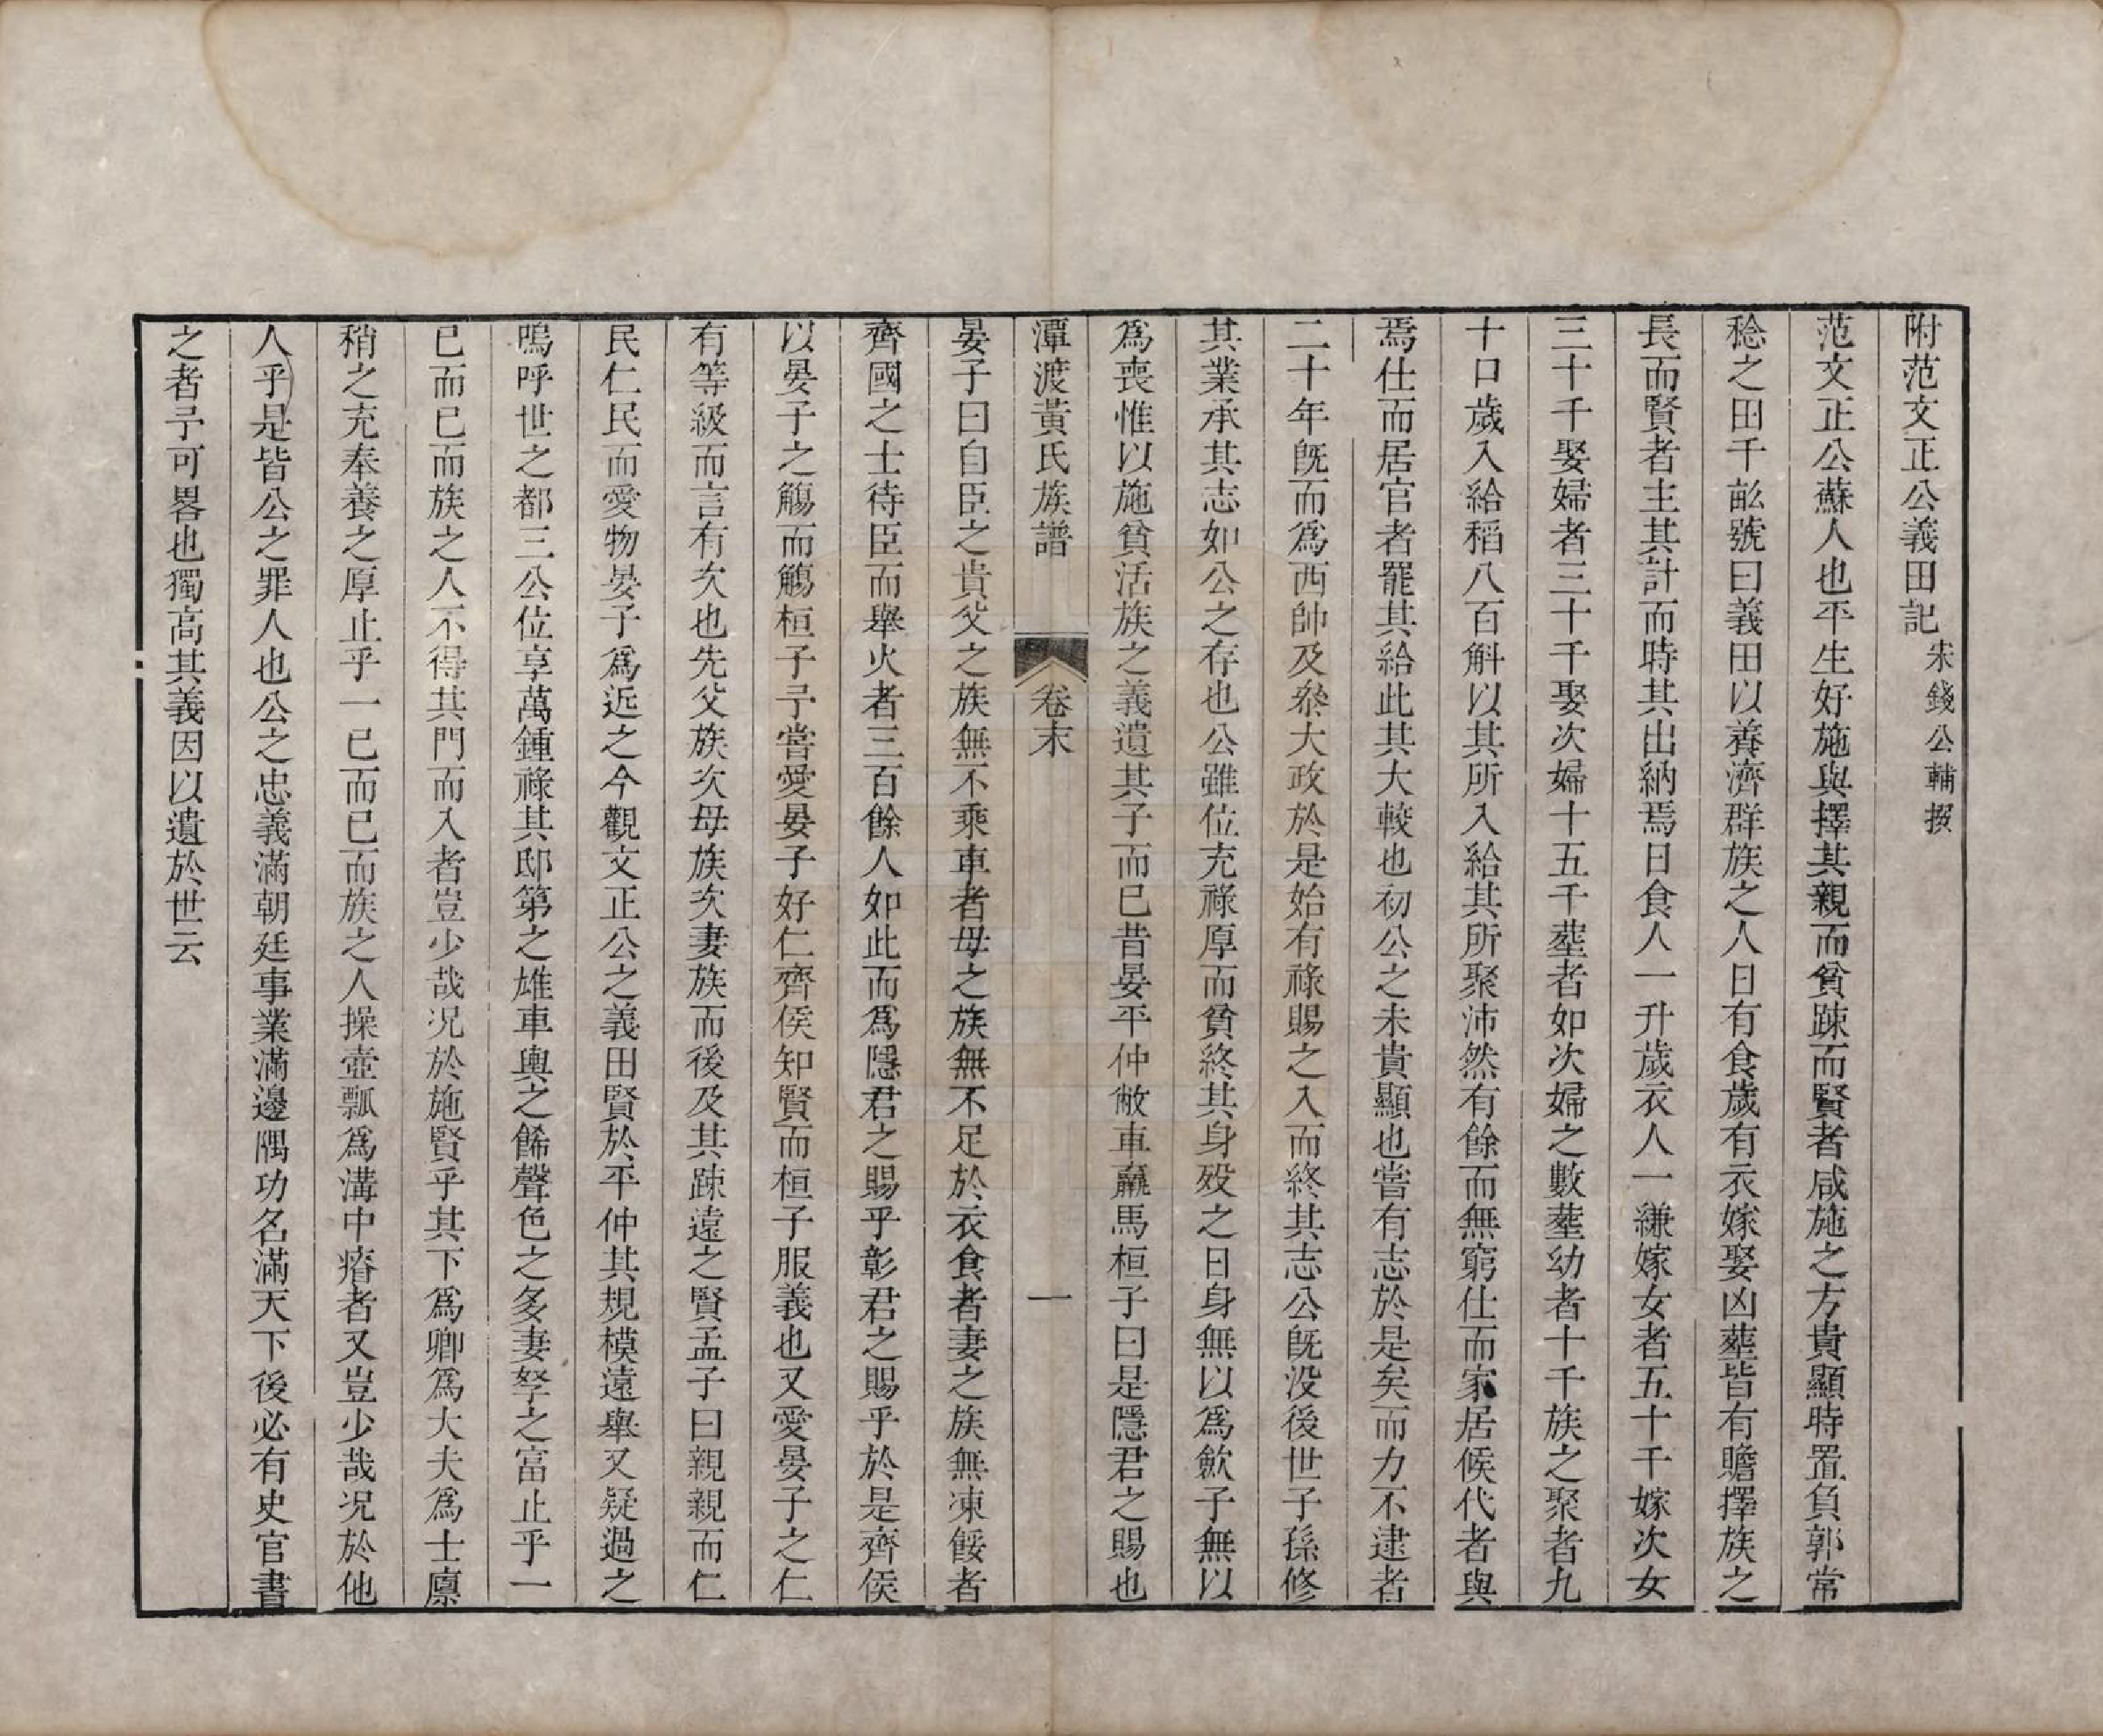 附范文正公義田記宋錢公輔撰
范文正公蘇人也平生好施與擇其親而貧踈而賢者咸施之方貴顯時置負郭常
稔之田千畝號曰義田以養濟群族之人日有食歲有衣嫁娶凶塟皆有贍擇族之
長而賢者主其計而時其出納焉日食人一升歲衣人一縑嫁女者五十千嫁次女
三十千娶婦者三十千娶次婦十五千塟者如次婦之數塟幼者十千族之聚者九
十口歲入給稻八百斛以其所入給其所聚沛然有餘而無窮仕而家居候代者與
焉仕而居官者罷其給此其大較也初公之未貴顯也嘗有志於是矣而力不逮者
二十年旣而爲西帥及叅大政於是始有祿賜之入而終其志公旣没後世子孫修
其業承其志如公之存也公雖位充祿厚而貧終其身殁之日身無以爲歛子無以
爲喪惟以施貧活族之義遺其子而已昔晏平仲敝車羸馬桓子曰是隱君之賜也
潭渡黃氏族譜 卷末 一
晏子曰自臣之貴父之族無不乘車者母之族無不足於衣食者妻之族無凍餒者
齊國之士待臣而舉火者三百餘人如此而爲隱君之賜乎彰君之賜乎於是齊侯
以晏子之觴而觴桓子予嘗愛晏子好仁齊侯知賢而桓子服義也又愛晏子之仁
有等級而言有次也先父族次母族次妻族而後及其踈遠之賢孟子曰親親而仁
民仁民而愛物晏子爲近之今觀文正公之義田賢於平仲其規模遠舉又疑過之
嗚呼世之都三公位享萬鍾祿其邸第之雄車輿之餙聲色之多妻孥之富止乎一
已而已而族之人不得其門而入者豈少哉况於施賢乎其下爲卿爲大夫爲士廩
稍之充奉養之厚止乎一已而已而族之人操壺瓢爲溝中瘠者又豈少哉况於他
人乎是皆公之罪人也公之忠義滿朝廷事業滿邊隅功名滿天下後必有史官書
之者予可畧也獨高其義因以遺於世云